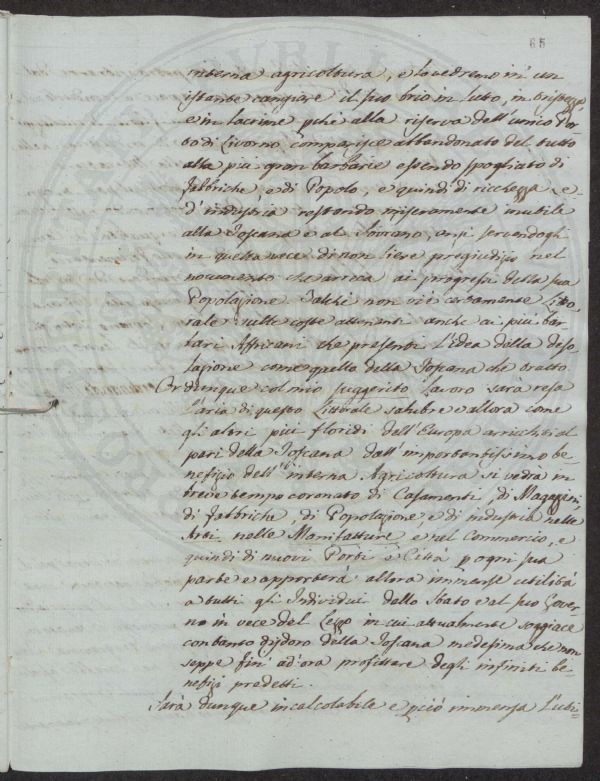 65
interna agricoltura, e lo vedremo in un
istante cangiare il suo brio in lutto, in tristezza
e in lacrime pchè alla riserva dell'unico Por-
to di Livorno comparisce abbandonato del tutto
alla più gran barbarie essendo spogliato di
fabbriche e di Popolo, e quindi di ricchezza e
d'industria restando miseramente inutile
alla Toscana e al Sovrano, anzi servendogli
in questa vece di non lieve pregiudizio nel
nocumento che arreca ai progressi della sua
Popolazione. Talchè non vi è certamente Litto-
rale sulle coste attenenti anche ai più bar-
bari Affricani che presenti l'idea della deso-
lazione come quello della Toscana che oratto
Or dunque col mio suggerito Lavoro sarà resa
l'aria di questo Littorale salubre e allora come
gli altri più floridi dell'Europa arricchito al
pari della Toscana dall'importantissimo be-
nefizio dell'interna Agricoltura si vedrà in
breve tempo coronato di Casamenti, di Magazzini,
di fabbriche, di Popolazione e di industria nelle
Arti, nelle Manifatture e nel Commercio, e
quindi di nuovi Porti e Città p ogni sua
parte e apporterà allora immense utilità
a tutti gli Individui dello Stato e al suo Gover-
no in vece del Lezzo in cui attualmente soggiace
con tanto disdoro della Toscana medesima che non
seppe fin' ad'ora profittare degli infiniti be-
nefizi predetti.
Sarà dunque incalcolabile e pciò immensa l'uti-